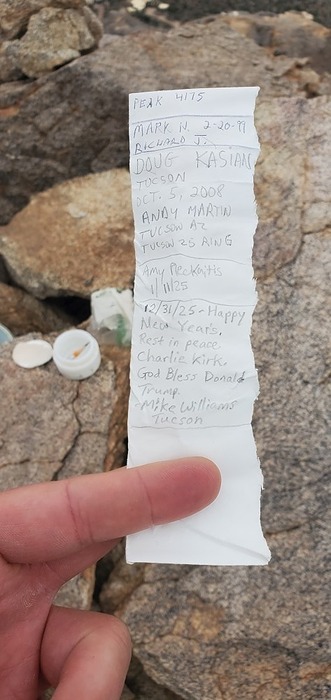 PEAK 4175
MARK N. 2-20-99
RICHARD J.
DOUG KASIAN
TUCSON
OCT. 5, 2008
ANDY MARTIN
TUCSON AZ
TUCSON 25 RING
Amy
1/11/25
12/31/25- Happy
New Years.
Rest in peace
Charlie Kirk.
God Bless Donald
Trump.
-Mike Williams
Tucson